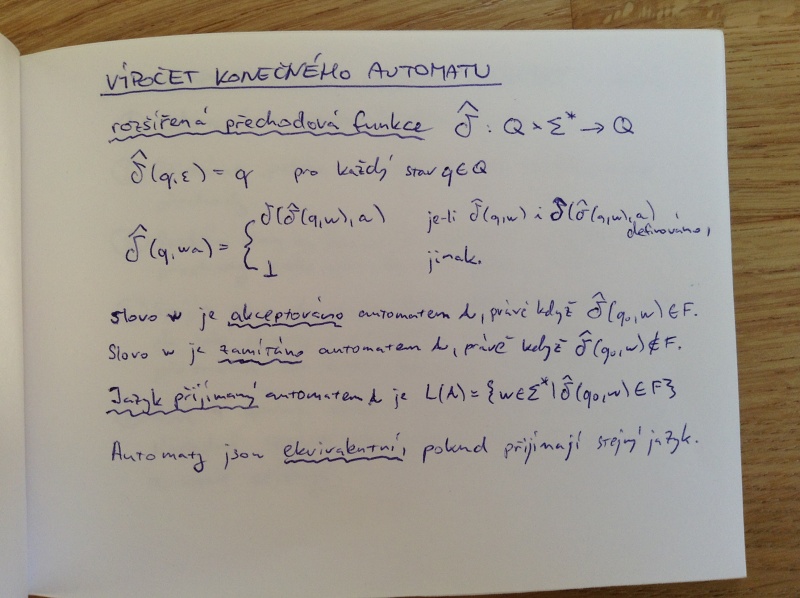 VÝPOČET KONEČNÉHO AUTOMATU
rozšířená přechodová funkce δ̂ : Q × Σ* → Q
δ̂(q,ε) = q pro každý stav q ∈ Q
δ̂(q,wa) = { δ(δ̂(q,w),a) je-li δ̂(q,w) i δ(δ̂(q,w),a) definováno,
⊥ jinak.
Slovo w je akceptováno automatem A, právě když δ̂(q₀,w) ∈ F.
Slovo w je zamítáno automatem A, právě když δ̂(q₀,w) ∉ F.
Jazyk přijímaný automatem A je L(A) = {w ∈ Σ* | δ̂(q₀,w) ∈ F}
Automaty jsou ekvivalentní, pokud přijímají stejný jazyk.